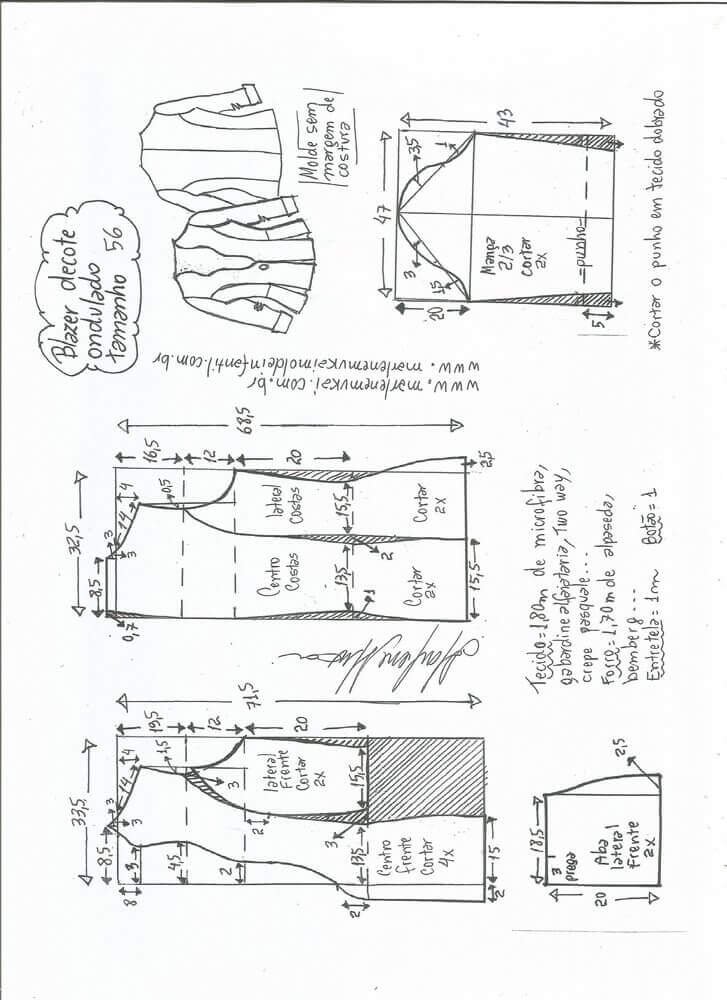 Blazer decote
ondulado
tamanho 56
Molde sem
margem de
costura
www.marlenemukaimoldeinfantil.com.br
www.marlenemukai.com.br
43
47
3,5
1
3
15
20
Manga
2/3
Cortar
2x
=punho=
5
*Cortar o punho em tecido dobrado
68,5
16,5
12
20
32,5
4
3
14
3
0,5
8,5
0,7
lateral
Costas
Centro
Costas
15,5
13,5
2
1
Cortar
2x
Cortar
2x
2,5
15,5
71,5
19,5
12
20
33,5
4
3
14
3
1,5
8,5
8
3
4,5
3
lateral
Frente
Cortar
2x
2
2
3
15,5
13,5
2
Centro
frente
Cortar
4x
15
2
Tecido=1,80m de microfibra,
gabardine alfaiataria, Two way,
crepe pasquale...
Forro=1,70m de alpaseda,
bemberg...
Entretela=1cm Botão=1
18,5
3
prega
Aba
lateral
Frente
2x
20
2,5